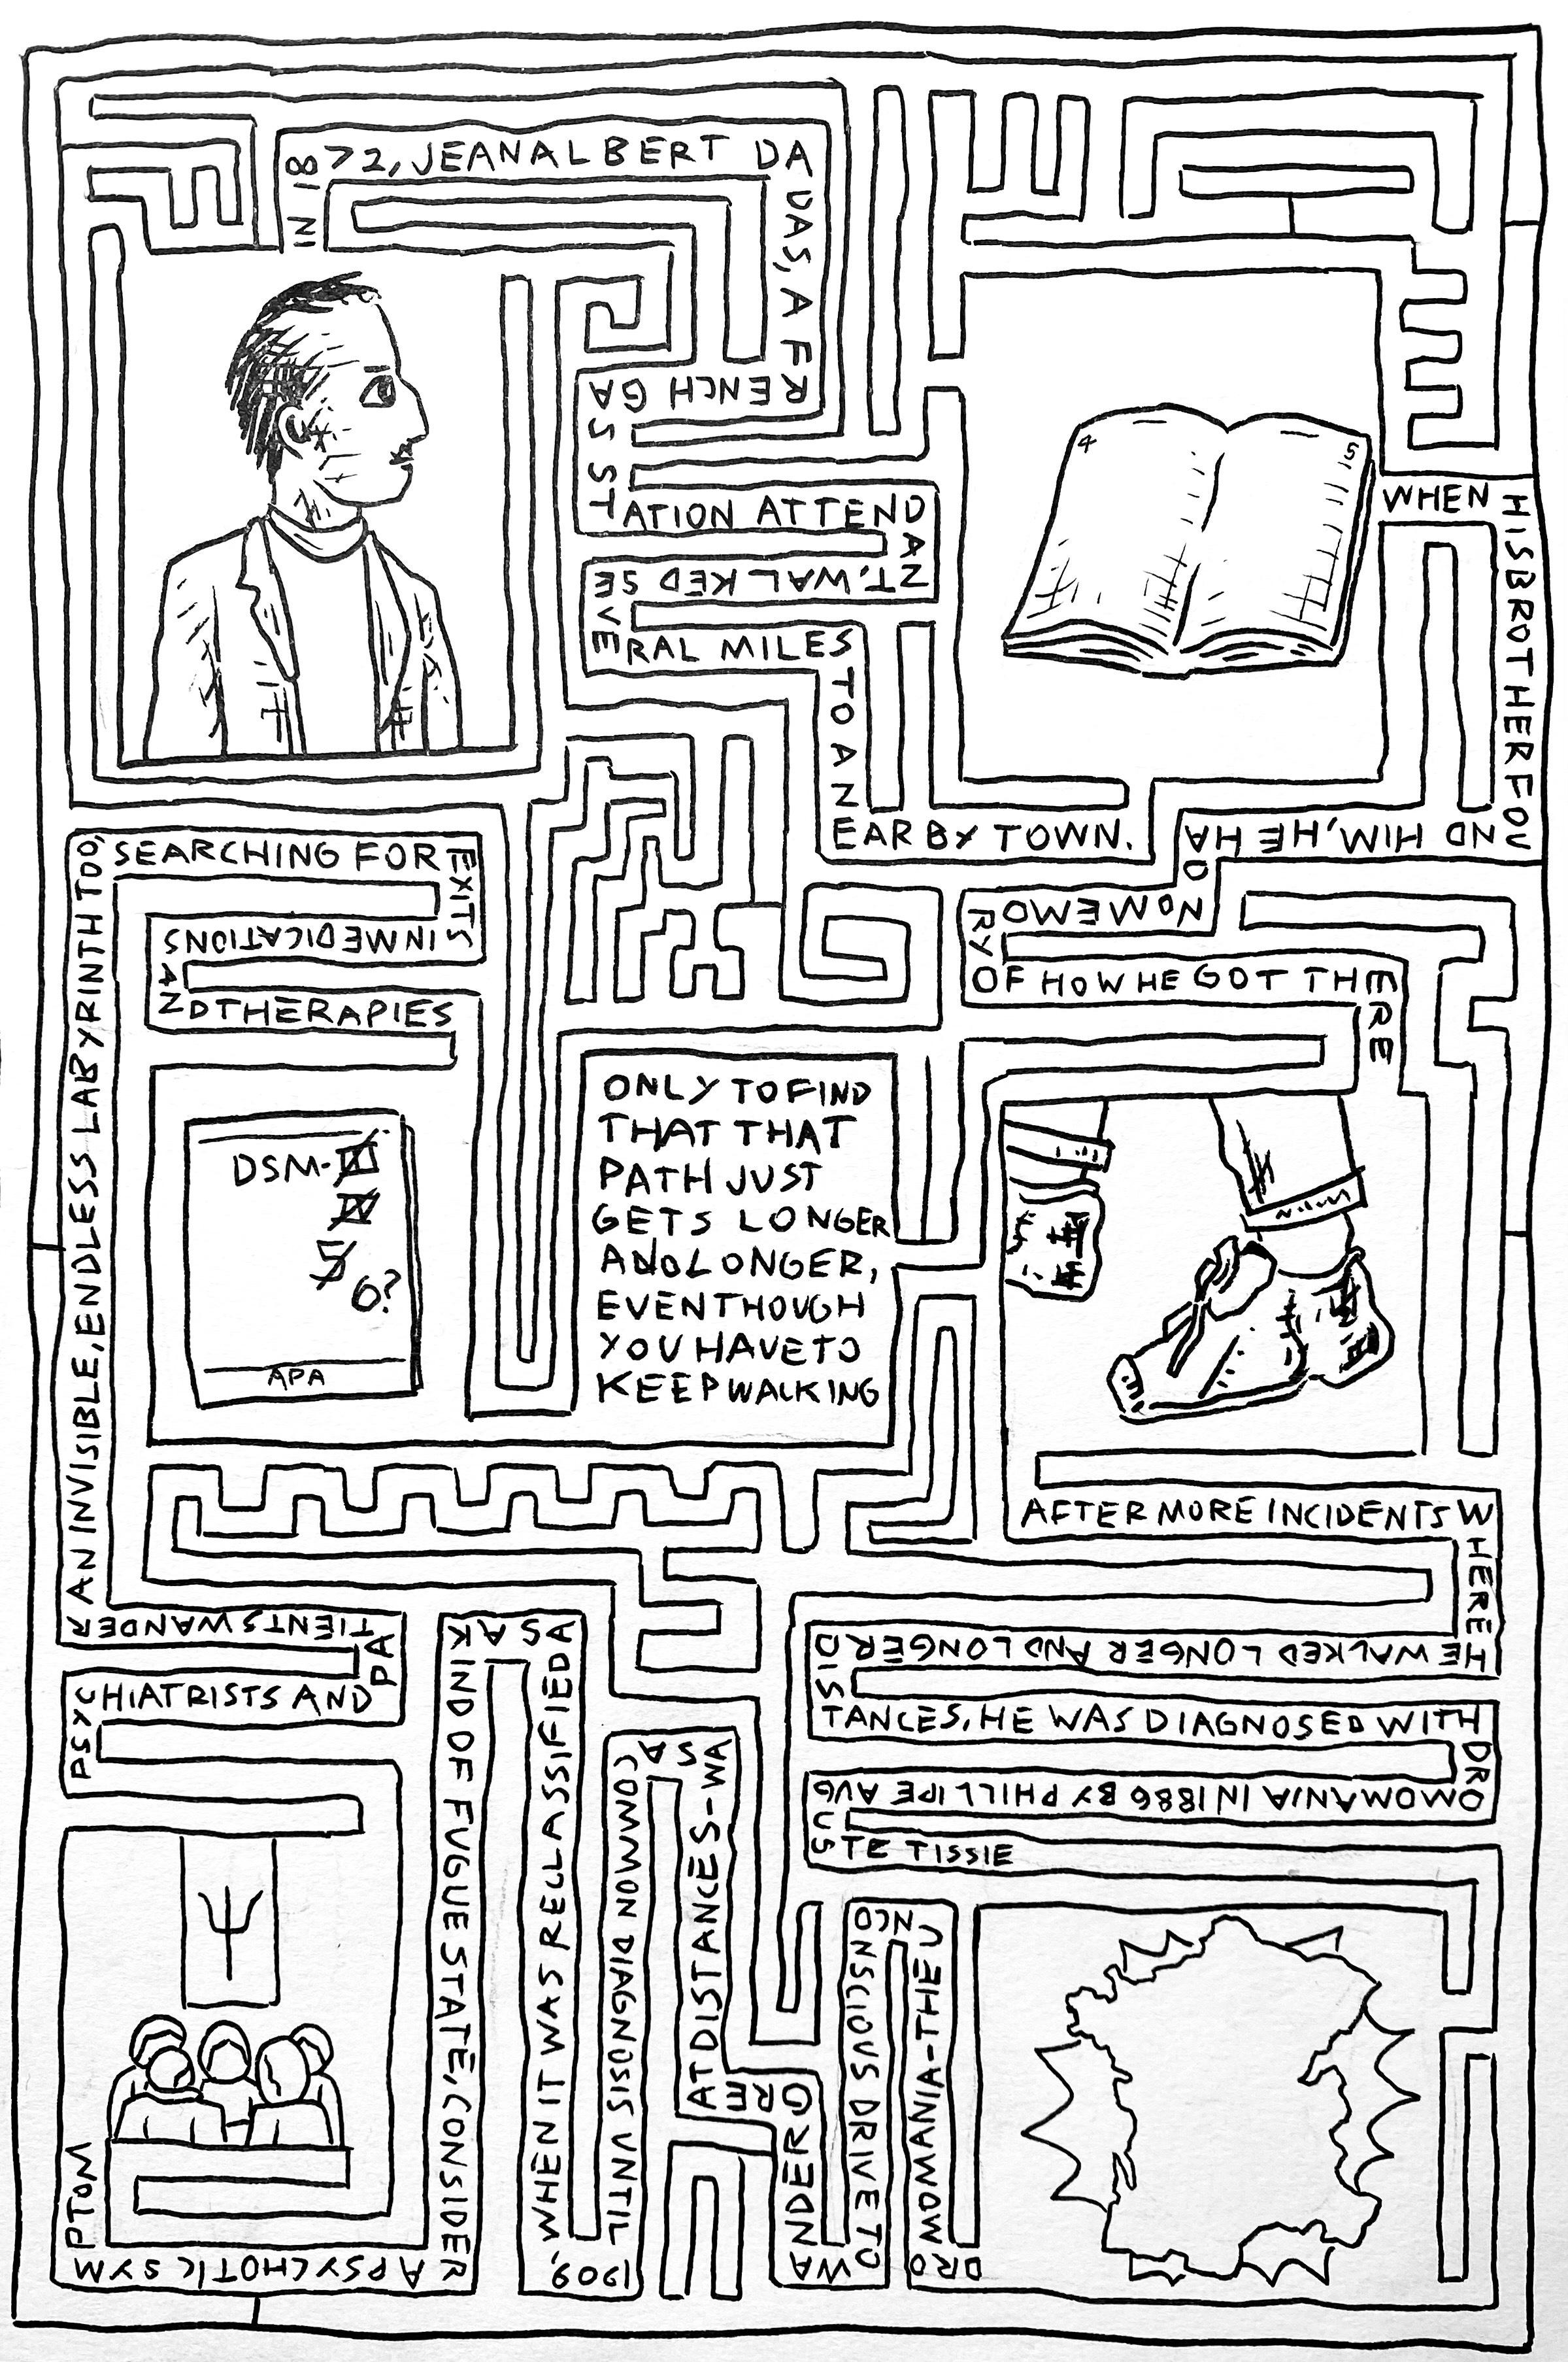 IN 18
72, JEAN ALBERT DA
DAS, A F
RENCH GA
S ST
ATION ATTEND
A
NT, WALKED SE
VE
RAL MILES
TO A N
EARBY TOWN.
4
5
WHEN
HIS BROTHER FOU
ND HIM, HE HA
D
NO MEMO
RY
OF HOW HE GOT THE
RE
AFTER MORE INCIDENTS W
HERE
HE WALKED LONGER AND LONGER D
IS
TANCES, HE WAS DIAGNOSED WITH
DR
OMOMANIA IN 1886 BY PHILLIPE AUG
US
TE TISSIE
DRO
MOMANIA-THE U
NCO
NSCIOUS DRIVE TO
WA
NDER G
RE
AT DISTANCES-WA
S A
COMMON DIAGNOSIS UNTIL
1909,
WHEN IT WAS RECLASSIFIED
AS A K
IND OF FUGUE STATE, CONSIDER
A PSYCHOTIC SYM
PTOM
Ψ
PSYC
HIATRISTS AND
PA
TIENTS WANDER
AN INVISIBLE, ENDLESS LABYRINTH TOO,
SEARCHING FOR
EXITS
IN MEDICATIONS
AN
D THERAPIES
DSM-III
IV
5
6?
APA
ONLY TO FIND
THAT THAT
PATH JUST
GETS LONGER
AND LONGER,
EVEN THOUGH
YOU HAVE TO
KEEP WALKING